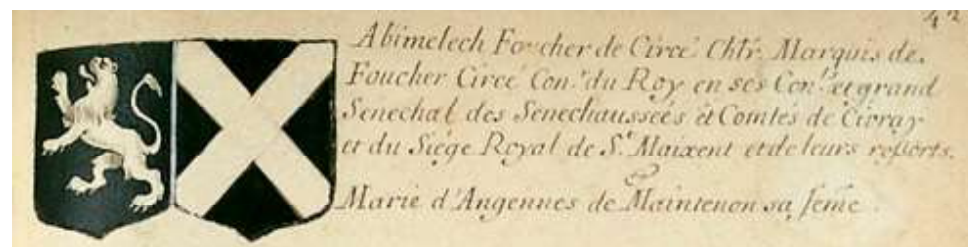 42
Abimelech Foucher de Circé Chlr. Marquis de
Foucher Circé Con.r du Roy en ses Con.ls et grand
Senechal des Senechaussées et Comtés de Civray
et du Siége Royal de S.t Maixent et de leurs ressorts.
&
Marie d'Angennes de Maintenon sa feme.